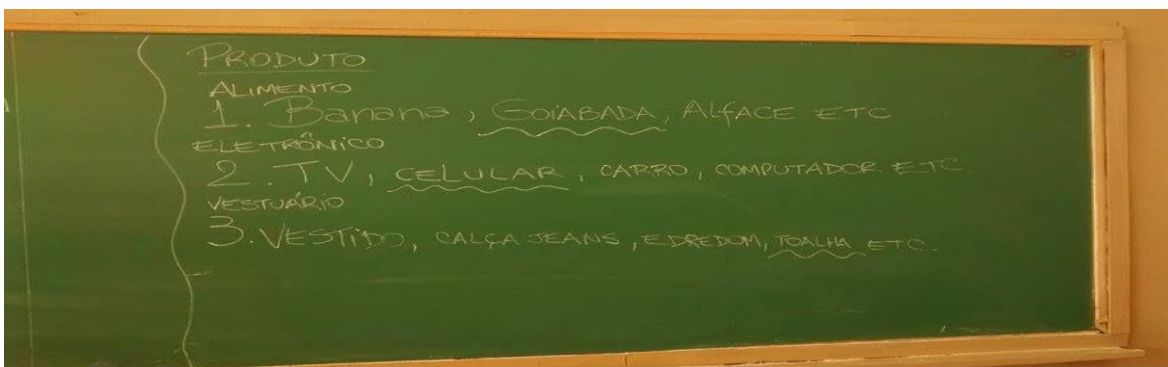 PRODUTO
ALIMENTO
1. Banana, GOIABADA, ALFACE ETC
ELETRÔNICO
2. TV, CELULAR, CARRO, COMPUTADOR ETC.
VESTUÁRIO
3. VESTIDO, CALÇA JEANS, EDREDOM, TOALHA ETC.